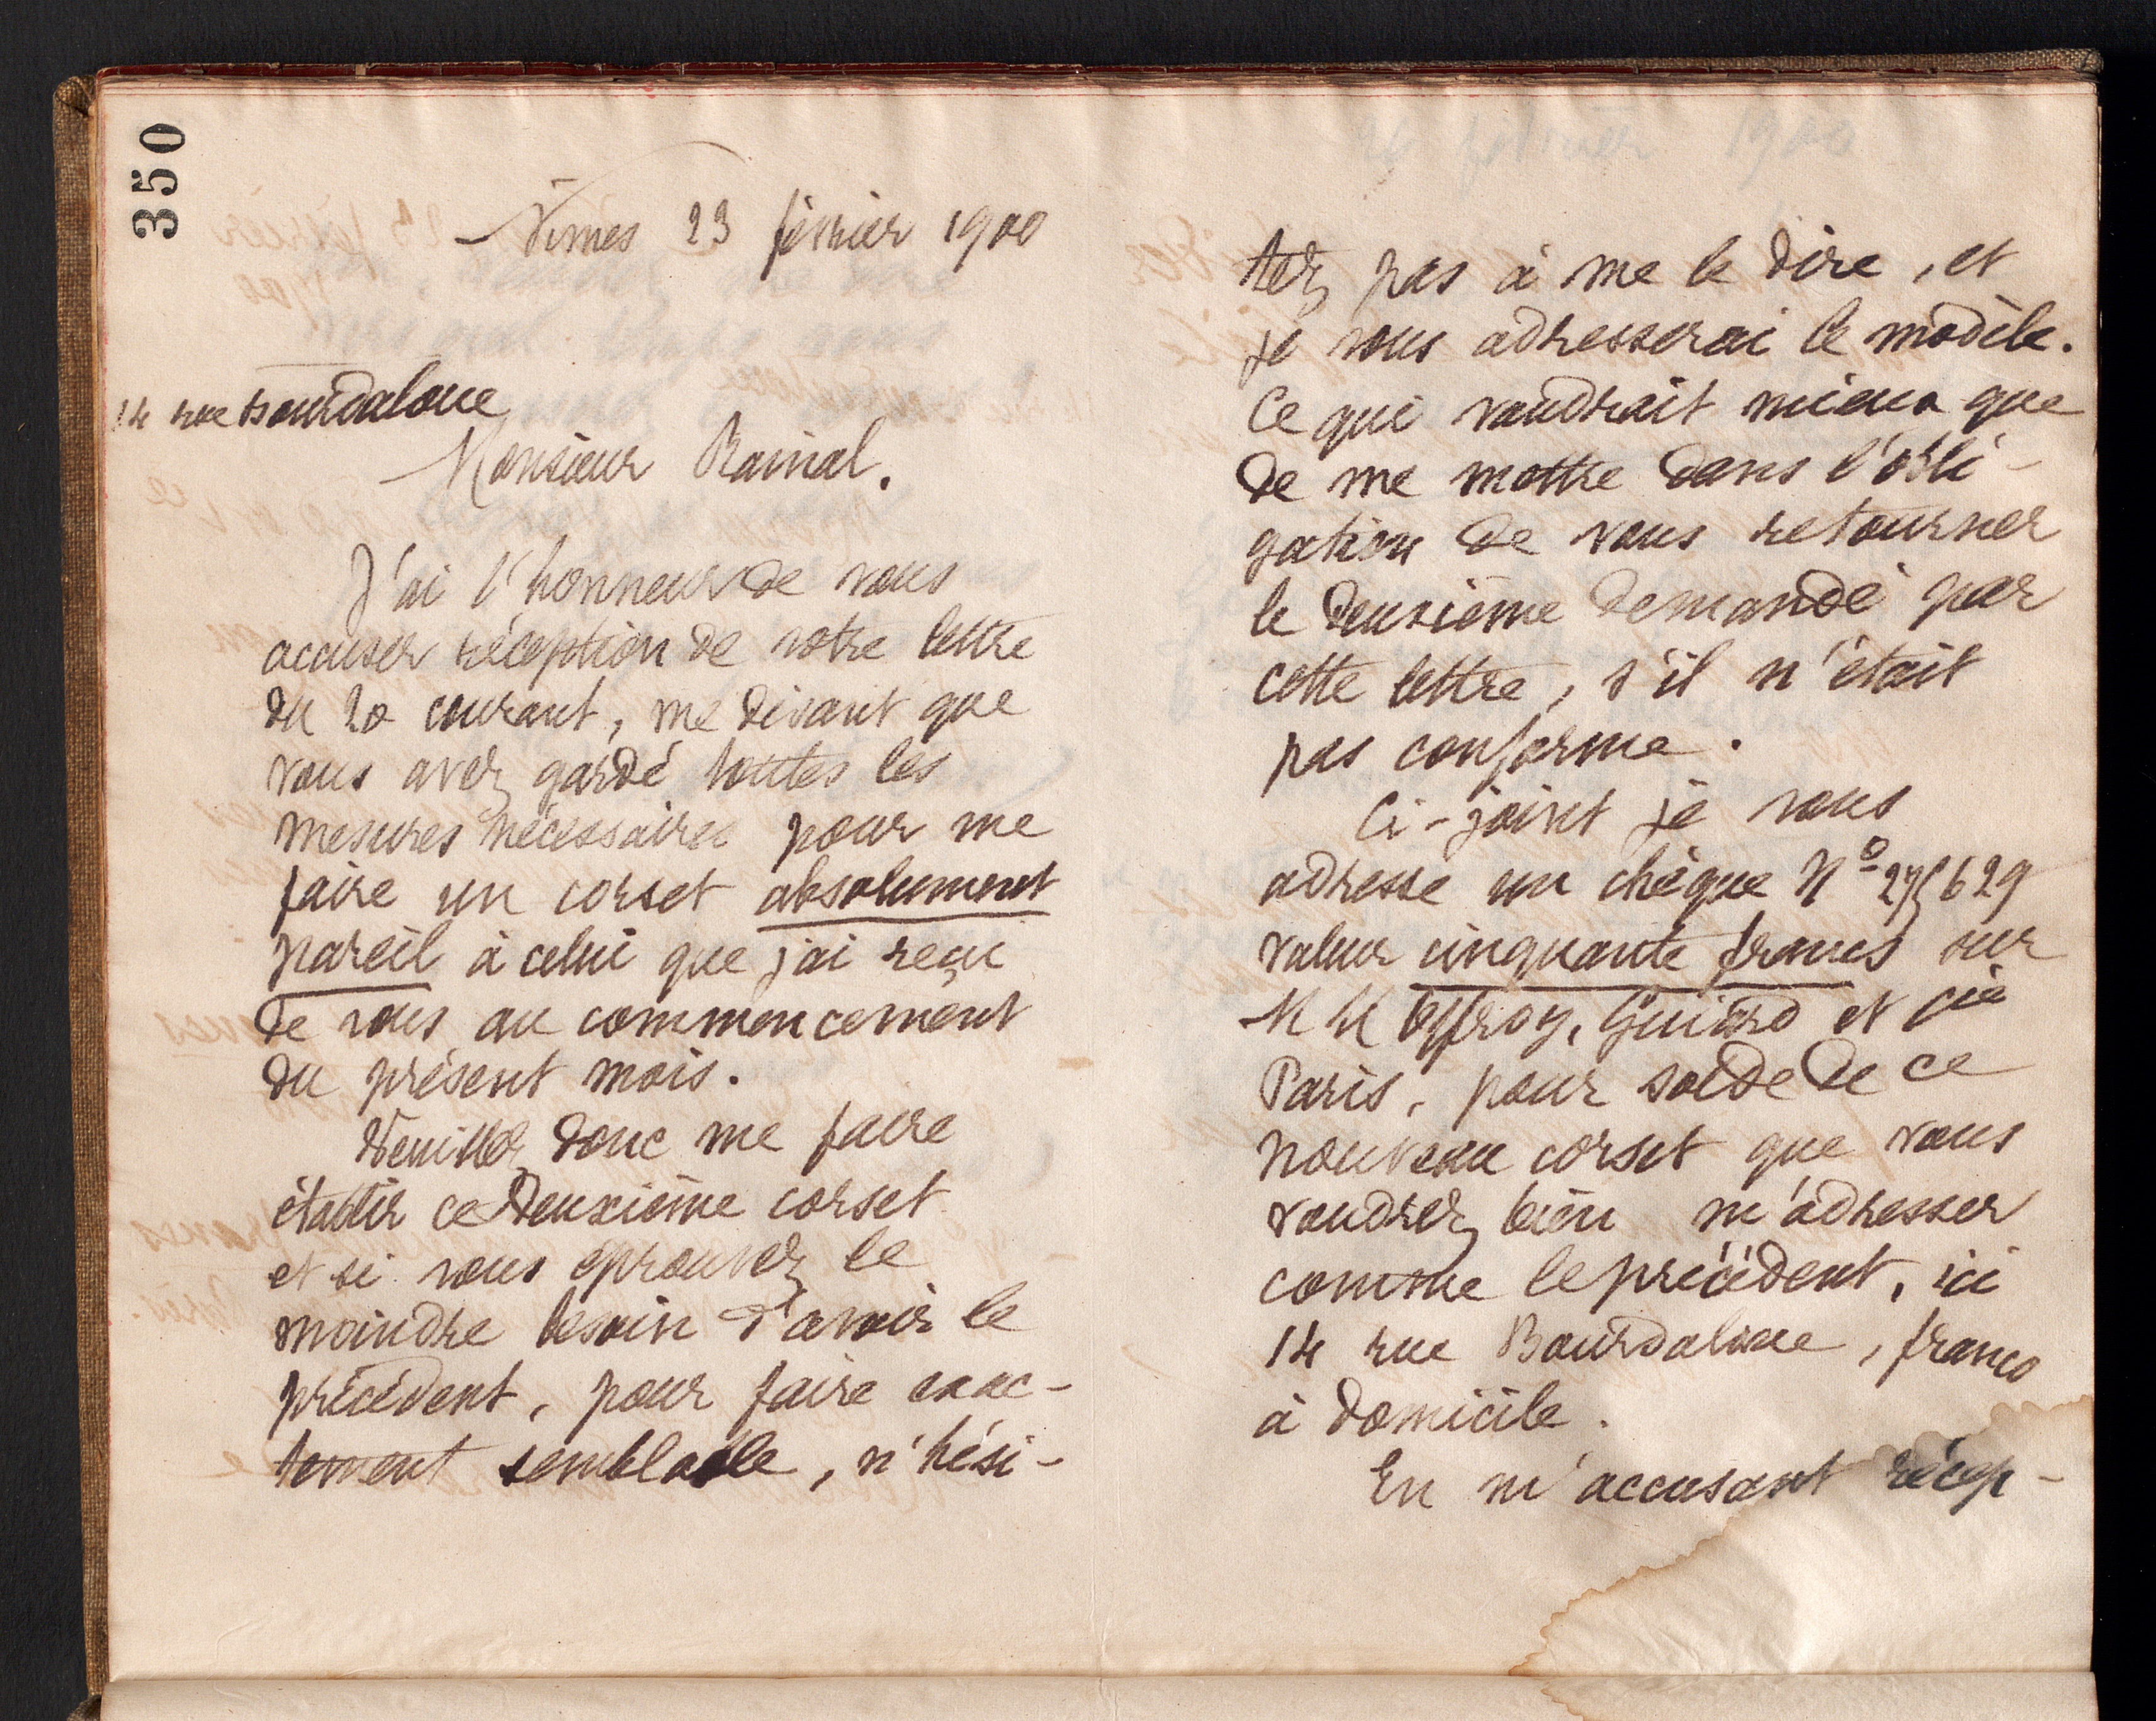 350
Nîmes 23 février 1900
14 rue Bourdaloue
Monsieur Rainal.
J'ai l'honneur de vous
accuser réception de votre lettre
du 20 courant, me disant que
vous avez gardé toutes les
mesures nécessaires pour me
faire un corset absolument
pareil à celui que j'ai reçu
de vous au commencement
du présent mois.
Veuillez donc me faire
établir ce deuxième corset
et si vous éprouvez le
moindre besoin d'avoir le
précédent, pour faire exac-
tement semblable, n'hési-
tez pas à me le dire, et
je vous adresserai le modèle.
Ce qui vaudrait mieux que
de me mettre dans l'obli-
gation de vous retourner
le deuxième demandé par
cette lettre, s'il n'était
pas conforme.
Ci-joint je vous
adresse un chèque No
valeur cinquante francs sur
MM Offroy, Guiard et Cie
Paris, pour solde de ce
nouveau corset que vous
voudrez bien m'adresser
comme le précédent, ici
14 rue Bourdaloue, franco
à domicile.
En m'accusant récep-